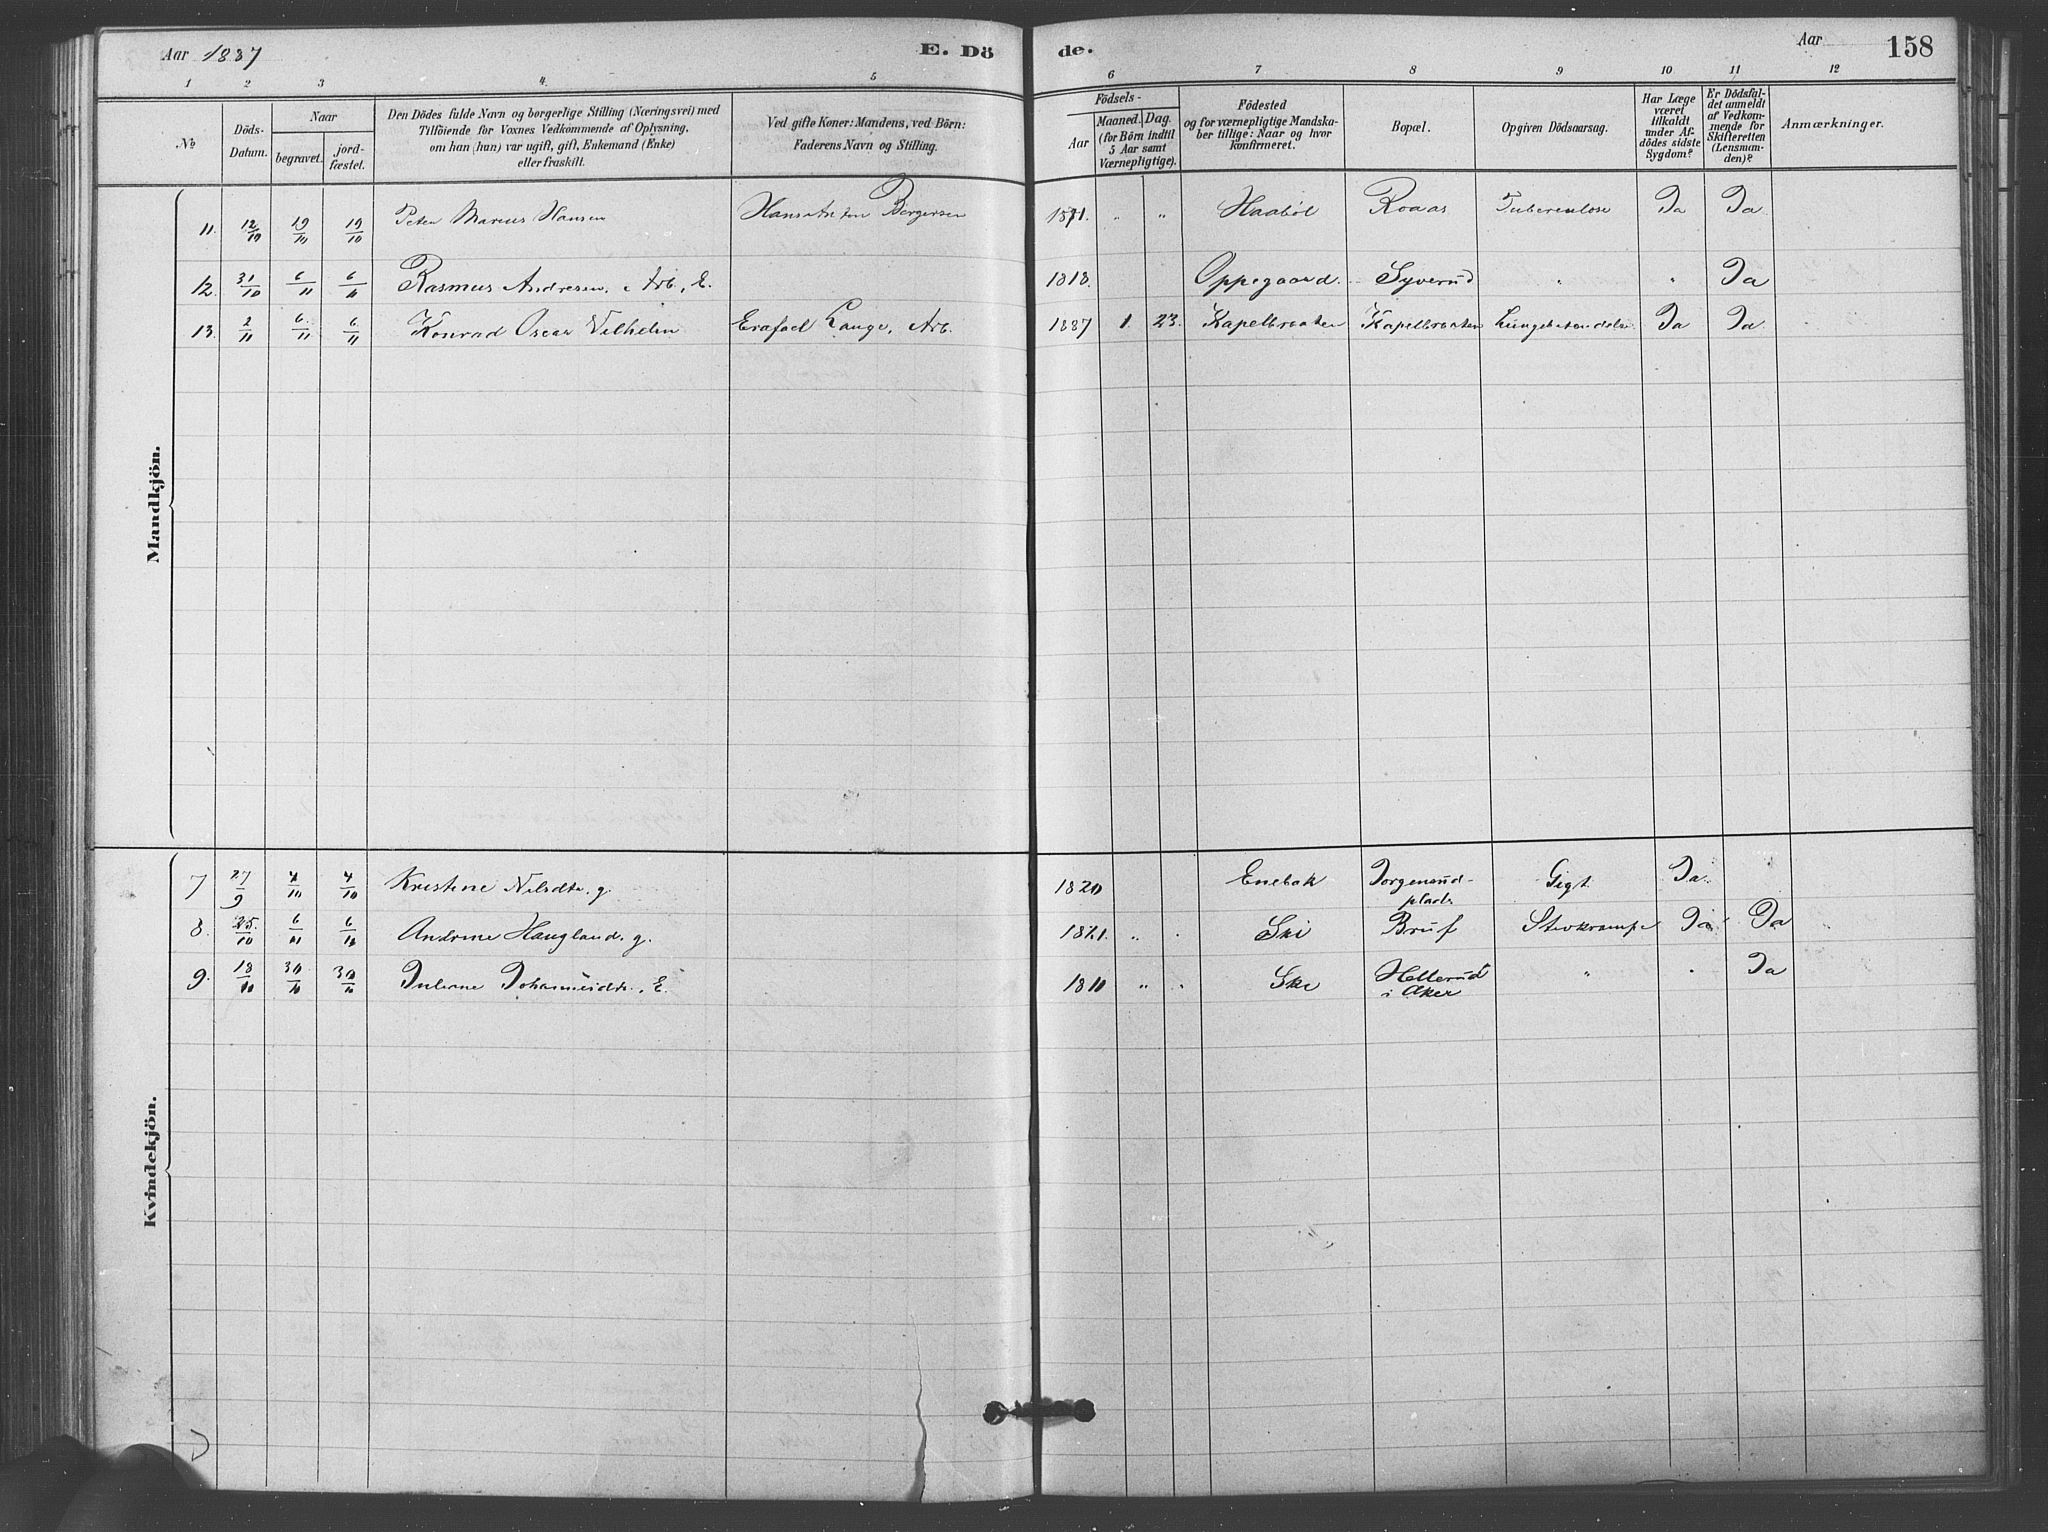 Aar 1887 E. Dö de. Aar 158
1 2 3 4. 5 6 7 8 9 10 11 12
No Döds-Datum. Naar begravet. jord-fæstet. Den Dödes fulde Navn og borgerlige Stilling (Næringsvei) med Tilföiende for Voxnes Vedkommende af Oplysning, om han (hun) var ugift, gift, Enkemand (Enke) eller fraskilt. Ved gifte Koner: Mandens, ved Börn: Faderens Navn og Stilling. Födsels- Aar Maaned. Dag. (for Börn indtil 5 Aar samt Værnepligtige). Födested og for værnepligtige Mandska-ber tillige: Naar og hvor konfirmeret. Bopæl. Opgiven Dödsaarsag. Har Læge været tilkaldt under Af-dödes sidste Sygdom? Er Dödsfal-det anmeldt af Vedkom-mende for Skifteretten (Lensman-den)? Anmærkninger.
Mandkjön.
11. 12/10 19/10 19/10 Peter Marius Hansen Hans Anton Börgersen 1871. " " Haaböl Roaas Tuberculose Ja Ja
12. 31/10 6/11 6/11 Rasmus Andresen, Arb., E. 1818. Oppegaard. Syverud " " Ja
13. 2/11 6/11 6/11 Konrad Oscar Vilhelm Erafael Lange, Arb. 1887 1. 23. Kapelbraaten Kapelbraaten Lungebetændelse Ja Ja
Kvindekjön.
7 27/9 4/10 4/10 Kristine Nilsdtr. g. 1820 Enebak Jorgenrud-plads Gigt Ja
8. 25./10 6/11 6/11 Andrine Haugland. g. 1821. " " Ski Bru Ja Ja
9. 18/10 30/10 30/10 Juliane Johannesdtr., E. 1810 " " Ski Hellerud i Aker " " Ja